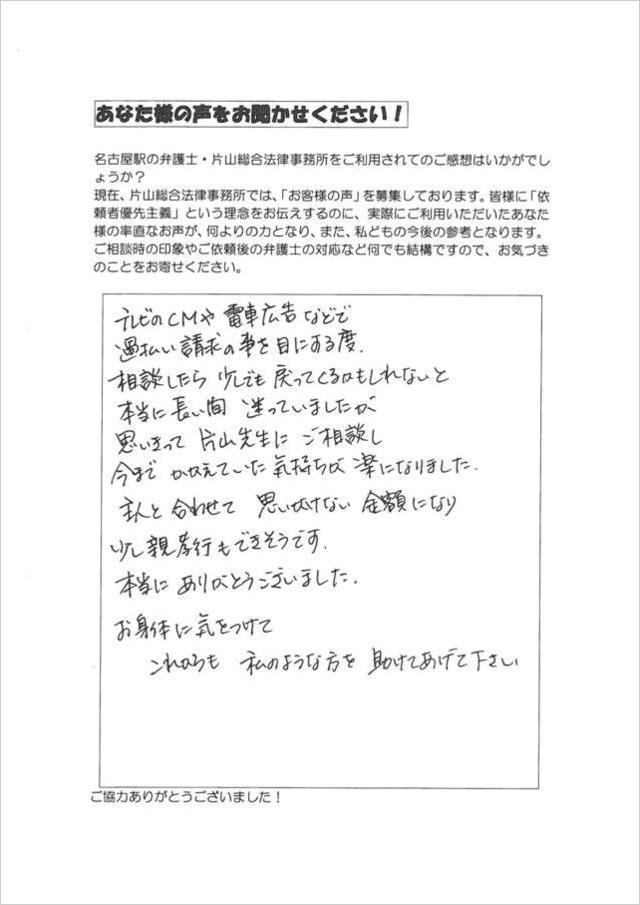 あなた様の声をお聞かせください！
名古屋駅の弁護士・片山総合法律事務所をご利用されてのご感想はいかがでし
ょうか？
現在、片山総合法律事務所では、「お客様の声」を募集しております。皆様に「依
頼者優先主義」という理念をお伝えするのに、実際にご利用いただいたあなた
様の率直なお声が、何よりの力となり、また、私どもの今後の参考となります。
ご相談時の印象やご依頼後の弁護士の対応など何でも結構ですので、お気づき
のことをお寄せください。
テレビのCMや 電車広告などで
過払い請求の事を目にする度、
相談したら 少しでも戻ってくるかもしれないと
本当に長い間 迷っていましたが
思いきって 片山先生に ご相談し
今まで かかえていた気持ちが 楽になりました。
主人と合わせて 思いがけない 金額になり
少し親孝行もできそうです。
本当に ありがとうございました。
お身体に気をつけて
これからも 私のような方を 助けてあげて下さい
ご協力ありがとうございました！